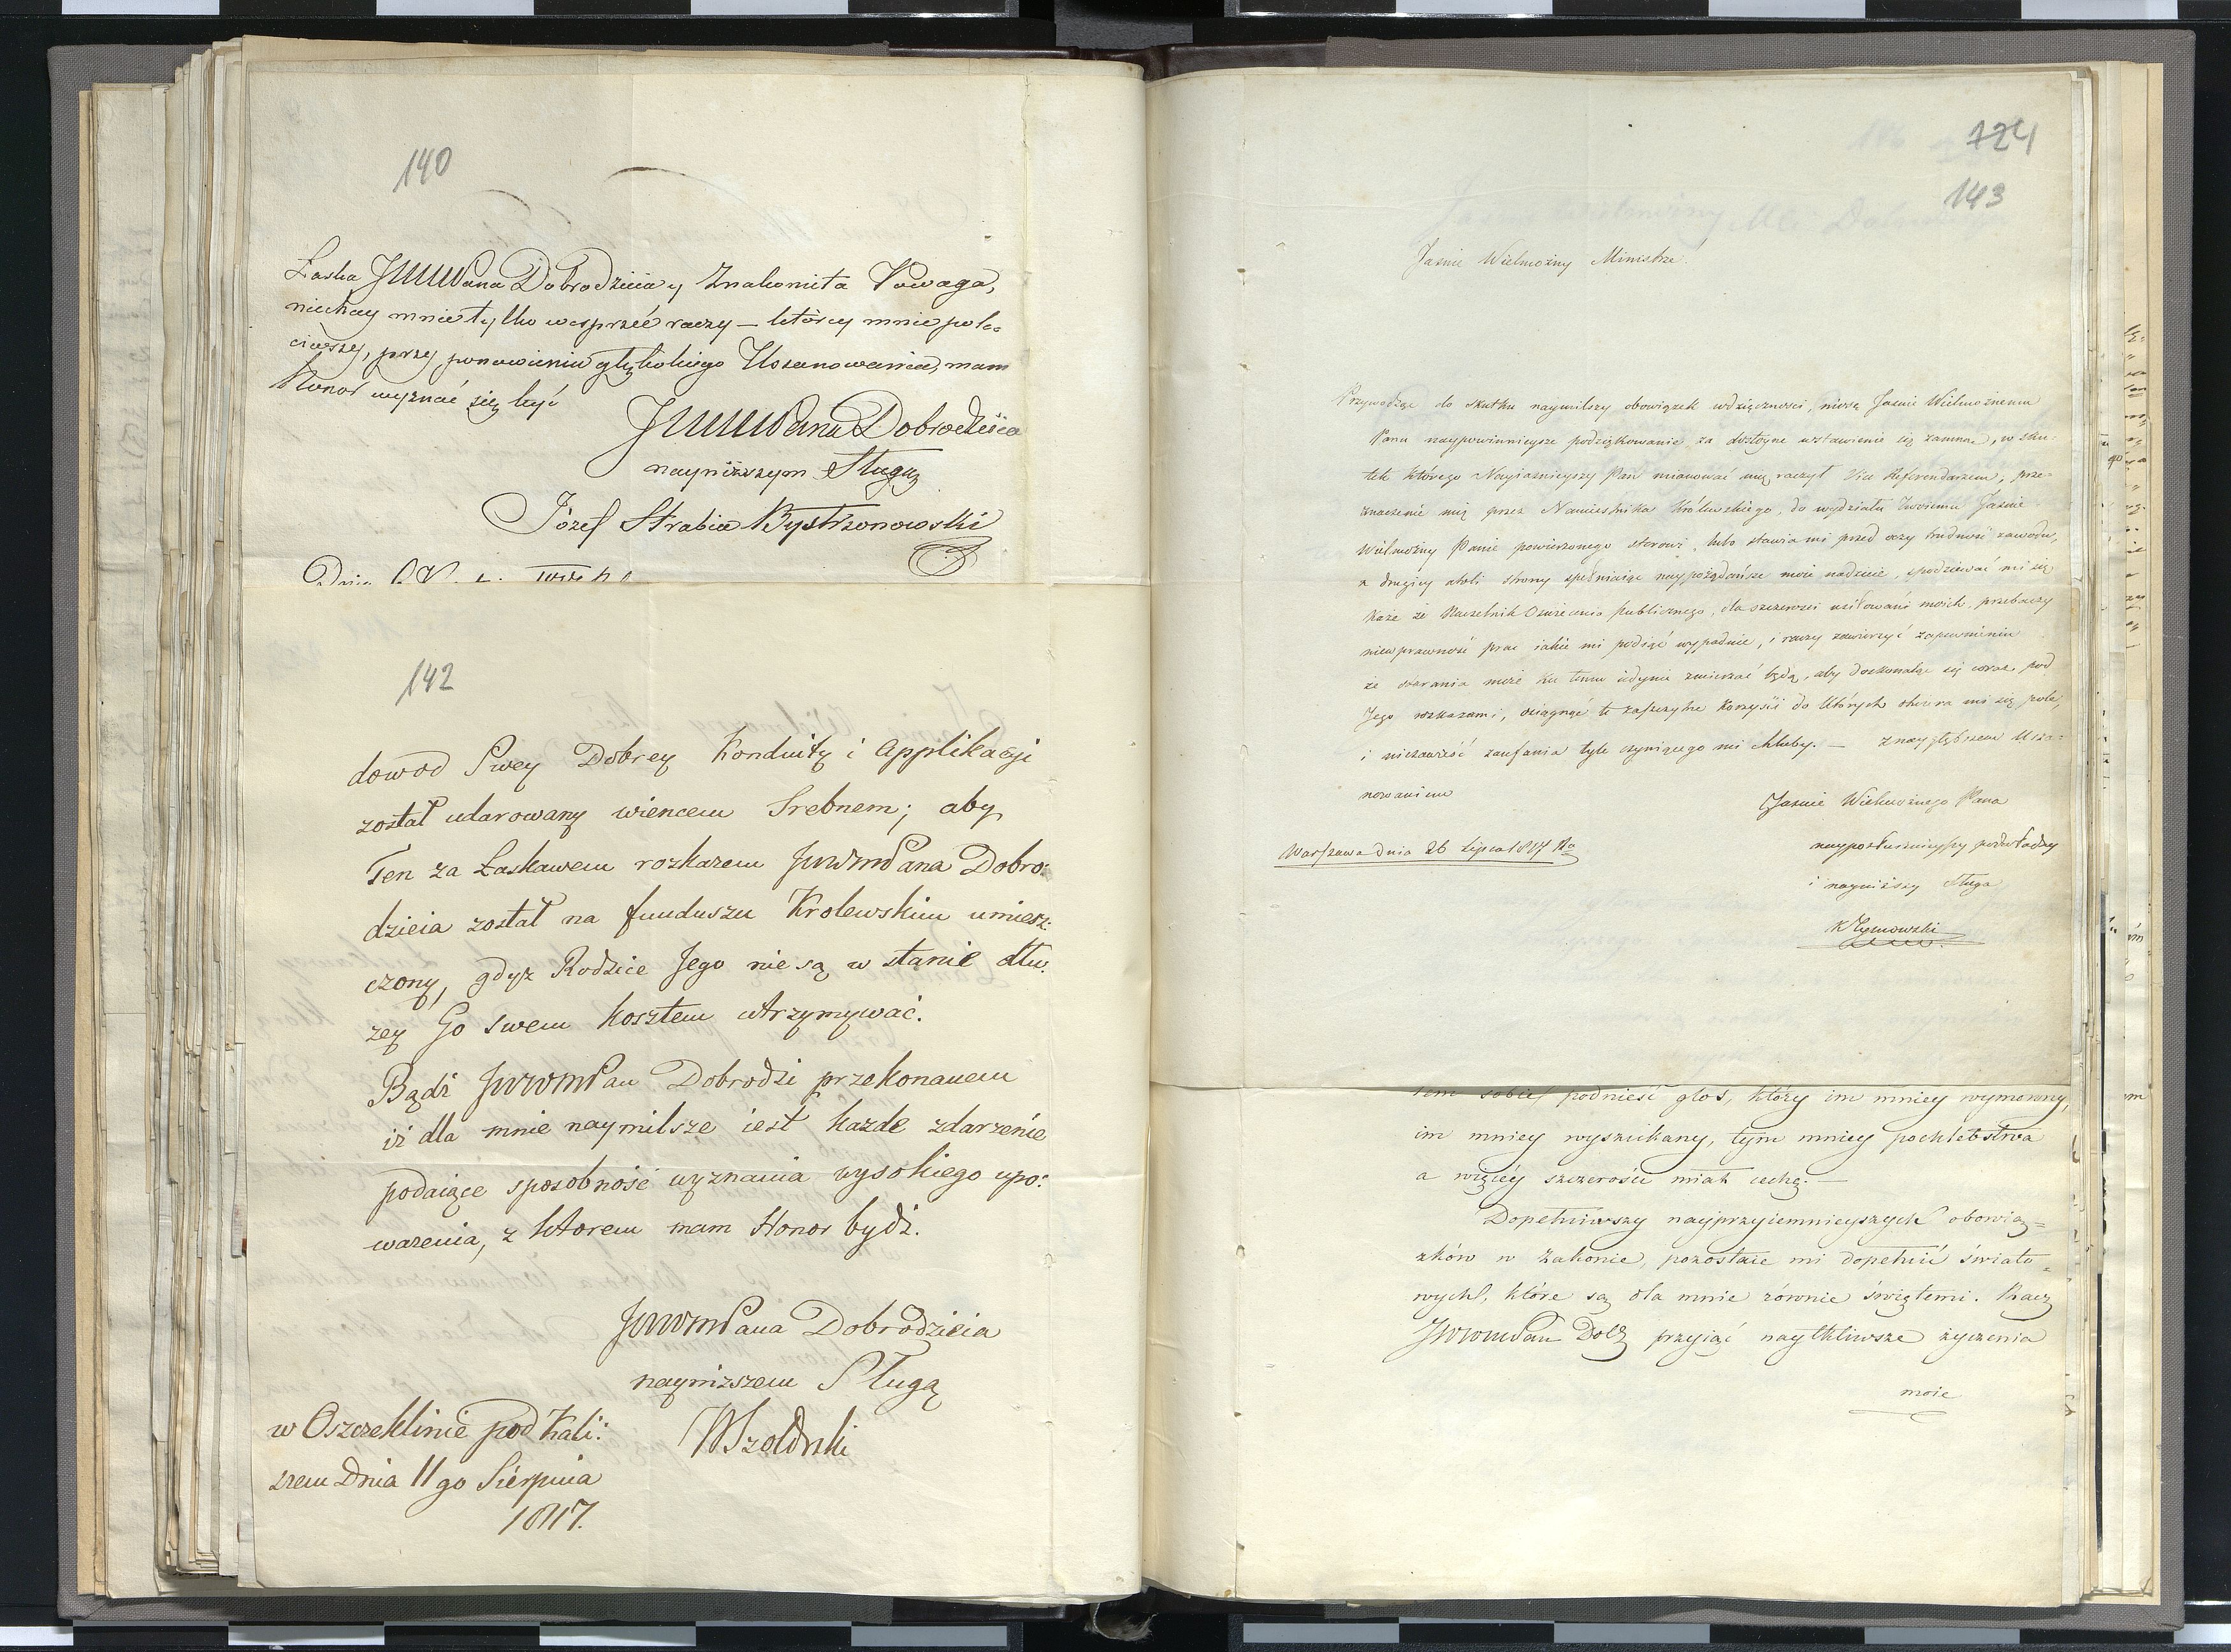 140
Łaska JWWWPana Dobrodzieia y Znakomita Powaga,
niechay mnie tylko wesprzeć raczy — którey mnie pole-
ciwszy, przy ponowieniu głębokiego Uszanowania, mam
Honor wyznać się być
JWWWPana Dobrodzieia
nayniższym Sługą
Józef Hrabia Bystrzonowski
Dnia
142
dowod Swey Dobrey Konduity i Applikacyi
został udarowany wiencem Srebnem; aby
Ten za Łaskawem rozkazem JWWMPana Dobro:
dzieia został na funduszu Krolewskim umiesz:
czony, gdyż Rodzice Jego nie są w stanie dłu:
zey Go swem kosztem utrzymywać.
Bądź JWWMPan Dobrodzi przekonanem
iż dla mnie naymilsze iest każde zdarzenie
podaiące sposobność wyznania wysokiego upo:
ważenia, z ktorem mam Honor bydź.
JWWMPana Dobrodzieia
naynizszem Sługą
w Oszczeklinie pod Kali:
szem Dnia 11go Sierpnia
1817.
124
143
Jaśnie Wielmożny Ministrze
Przywodząc do skutku naymilszy obowiązek wdzięczności, niosę Jaśnie Wielmożnemu
Panu naypowinnieysze podziękowanie za dostoyne wstawienie się zamną, w sku-
tek którego Nayiaśnieyszy Pan mianować mię raczył Vice Referendarzem; prze-
znaczenie mię przez Namiestnika Królewskiego, do wydziału Twoiemu Jaśnie
Wielmożny Panie powierzonego sterowi, lubo stawia mi przed oczy trudność zawodu,
z drugiey atoli strony spełniaiąc naypożądańsze moie nadzieie, spodziewać mi się
każe że Naczelnik Oświecenia publicznego, dla szczerości usiłowań moich, przebaczy
niewprawność prac iakie mi podiąć wypadnie, i raczy zawierzyć zapewnieniu
że starania moie ku temu iedynie zmierzać będą, aby doskonaląc się coraz pod
Jego rozkazami, osiągnąć te zaszczytne korzyści do których otwiera mi się pole,
i niezawieść zaufania tyle czyniącego mi chluby. — Z naygłębszem Usza-
nowaniem
Jaśnie Wielmożnego Pana
nayposłusznieyszy podwładny
i nayniższy sługa
Warszawa dnia 26 Lipca 1817 Ro
tem sobie podnieść głos, który im mniey wymowny,
im mniey wyszukany, tym mniey pochlebstwa
a więcey szczerości miał cechę. —
Dopełniwszy nayprzyiemnieyszych obowią-
zków w Zakonie, pozostaie mi dopełnić świato-
wych, które są dla mnie równie świętemi. Racz
JWWMPan Dobz przyiąć naytkliwsze życzenia
moie